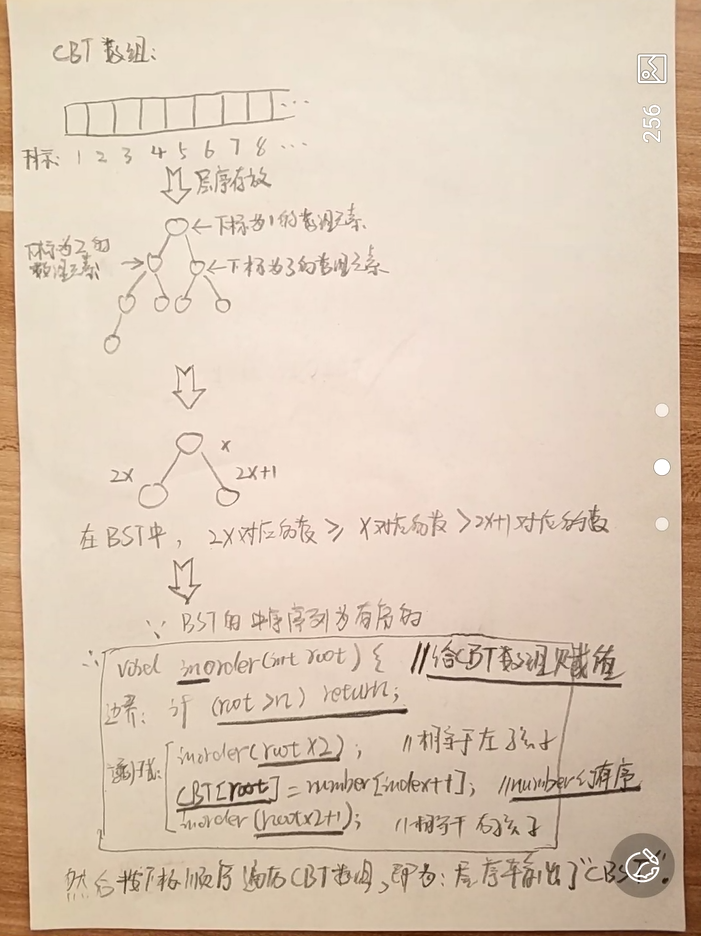 CBT数组:
下标: 1 2 3 4 5 6 7 8 ...
层序存放
←下标为1的数组元素
下标为2的
数组元素 →
←下标为3的数组元素
x
2x 2x+1
在BST中, 2x对应的数 ≥ x对应的数 > 2x+1对应的数
∵ BST的中序序列为有序的
∴ void inorder(int root) { //给CBT数组赋值
边界: if (root >n) return;
递归式: inorder(root x2); //相等于左孩子
CBT[root] = number[index++]; //number已有序
inorder(rootx2+1); //相等于右孩子
然后按下标顺序遍历CBT数组,即为:层序输出了"CBST".
256